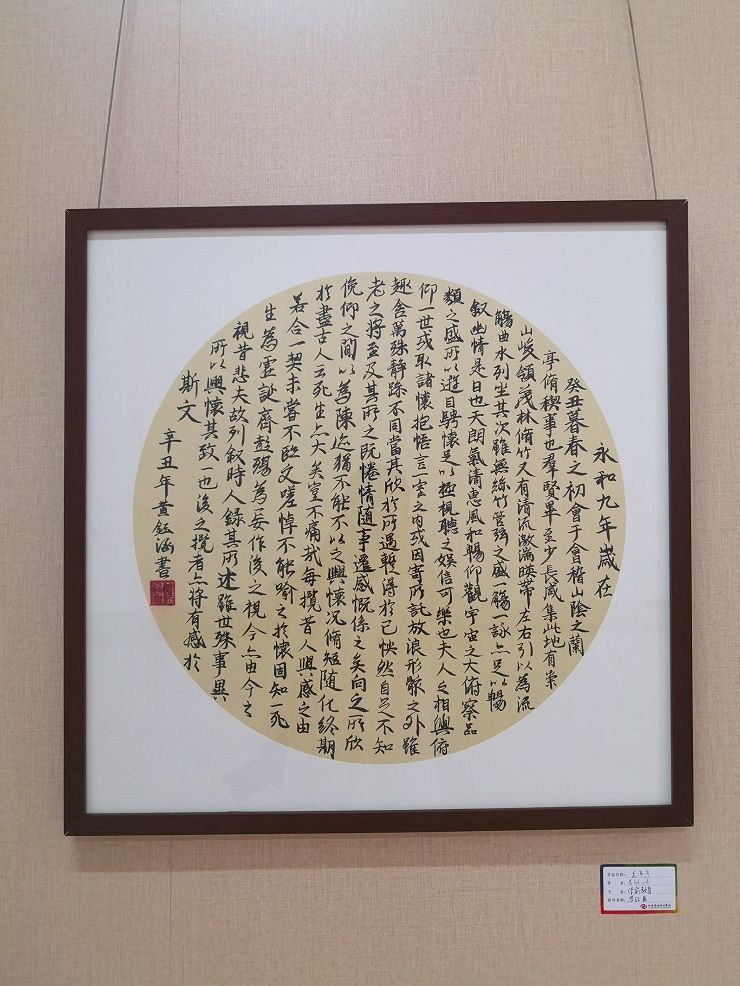 永和九年歲在
癸丑暮春之初會于會稽山陰之蘭
亭脩稧事也羣賢畢至少長咸集此地有崇
山峻領茂林脩竹又有清流激湍暎帶左右引以為流
觴曲水列坐其次雖無絲竹管弦之盛一觴一詠亦足以暢
叙幽情是日也天朗氣清惠風和暢仰觀宇宙之大俯察品
類之盛所以遊目騁懷足以極視聽之娛信可樂也夫人之相與俯
仰一世或取諸懷抱悟言一室之內或因寄所託放浪形骸之外雖
趣舍萬殊靜躁不同當其欣於所遇暫得於己怏然自足不知
老之將至及其所之既惓情隨事遷感慨係之矣向之所欣
俛仰之間以為陳迹猶不能不以之興懷況脩短隨化終期
於盡古人云死生亦大矣豈不痛哉每攬昔人興感之由
若合一契未嘗不臨文嗟悼不能喻之於懷固知一死
生為虛誕齊彭殤為妄作後之視今亦由今之
視昔悲夫故列叙時人錄其所述雖世殊事異
所以興懷其致一也後之攬者亦將有感於
斯文
辛丑年黃鈺涵書
作品名称: 兰亭序
作者:
专业: 学前教育
指导老师: